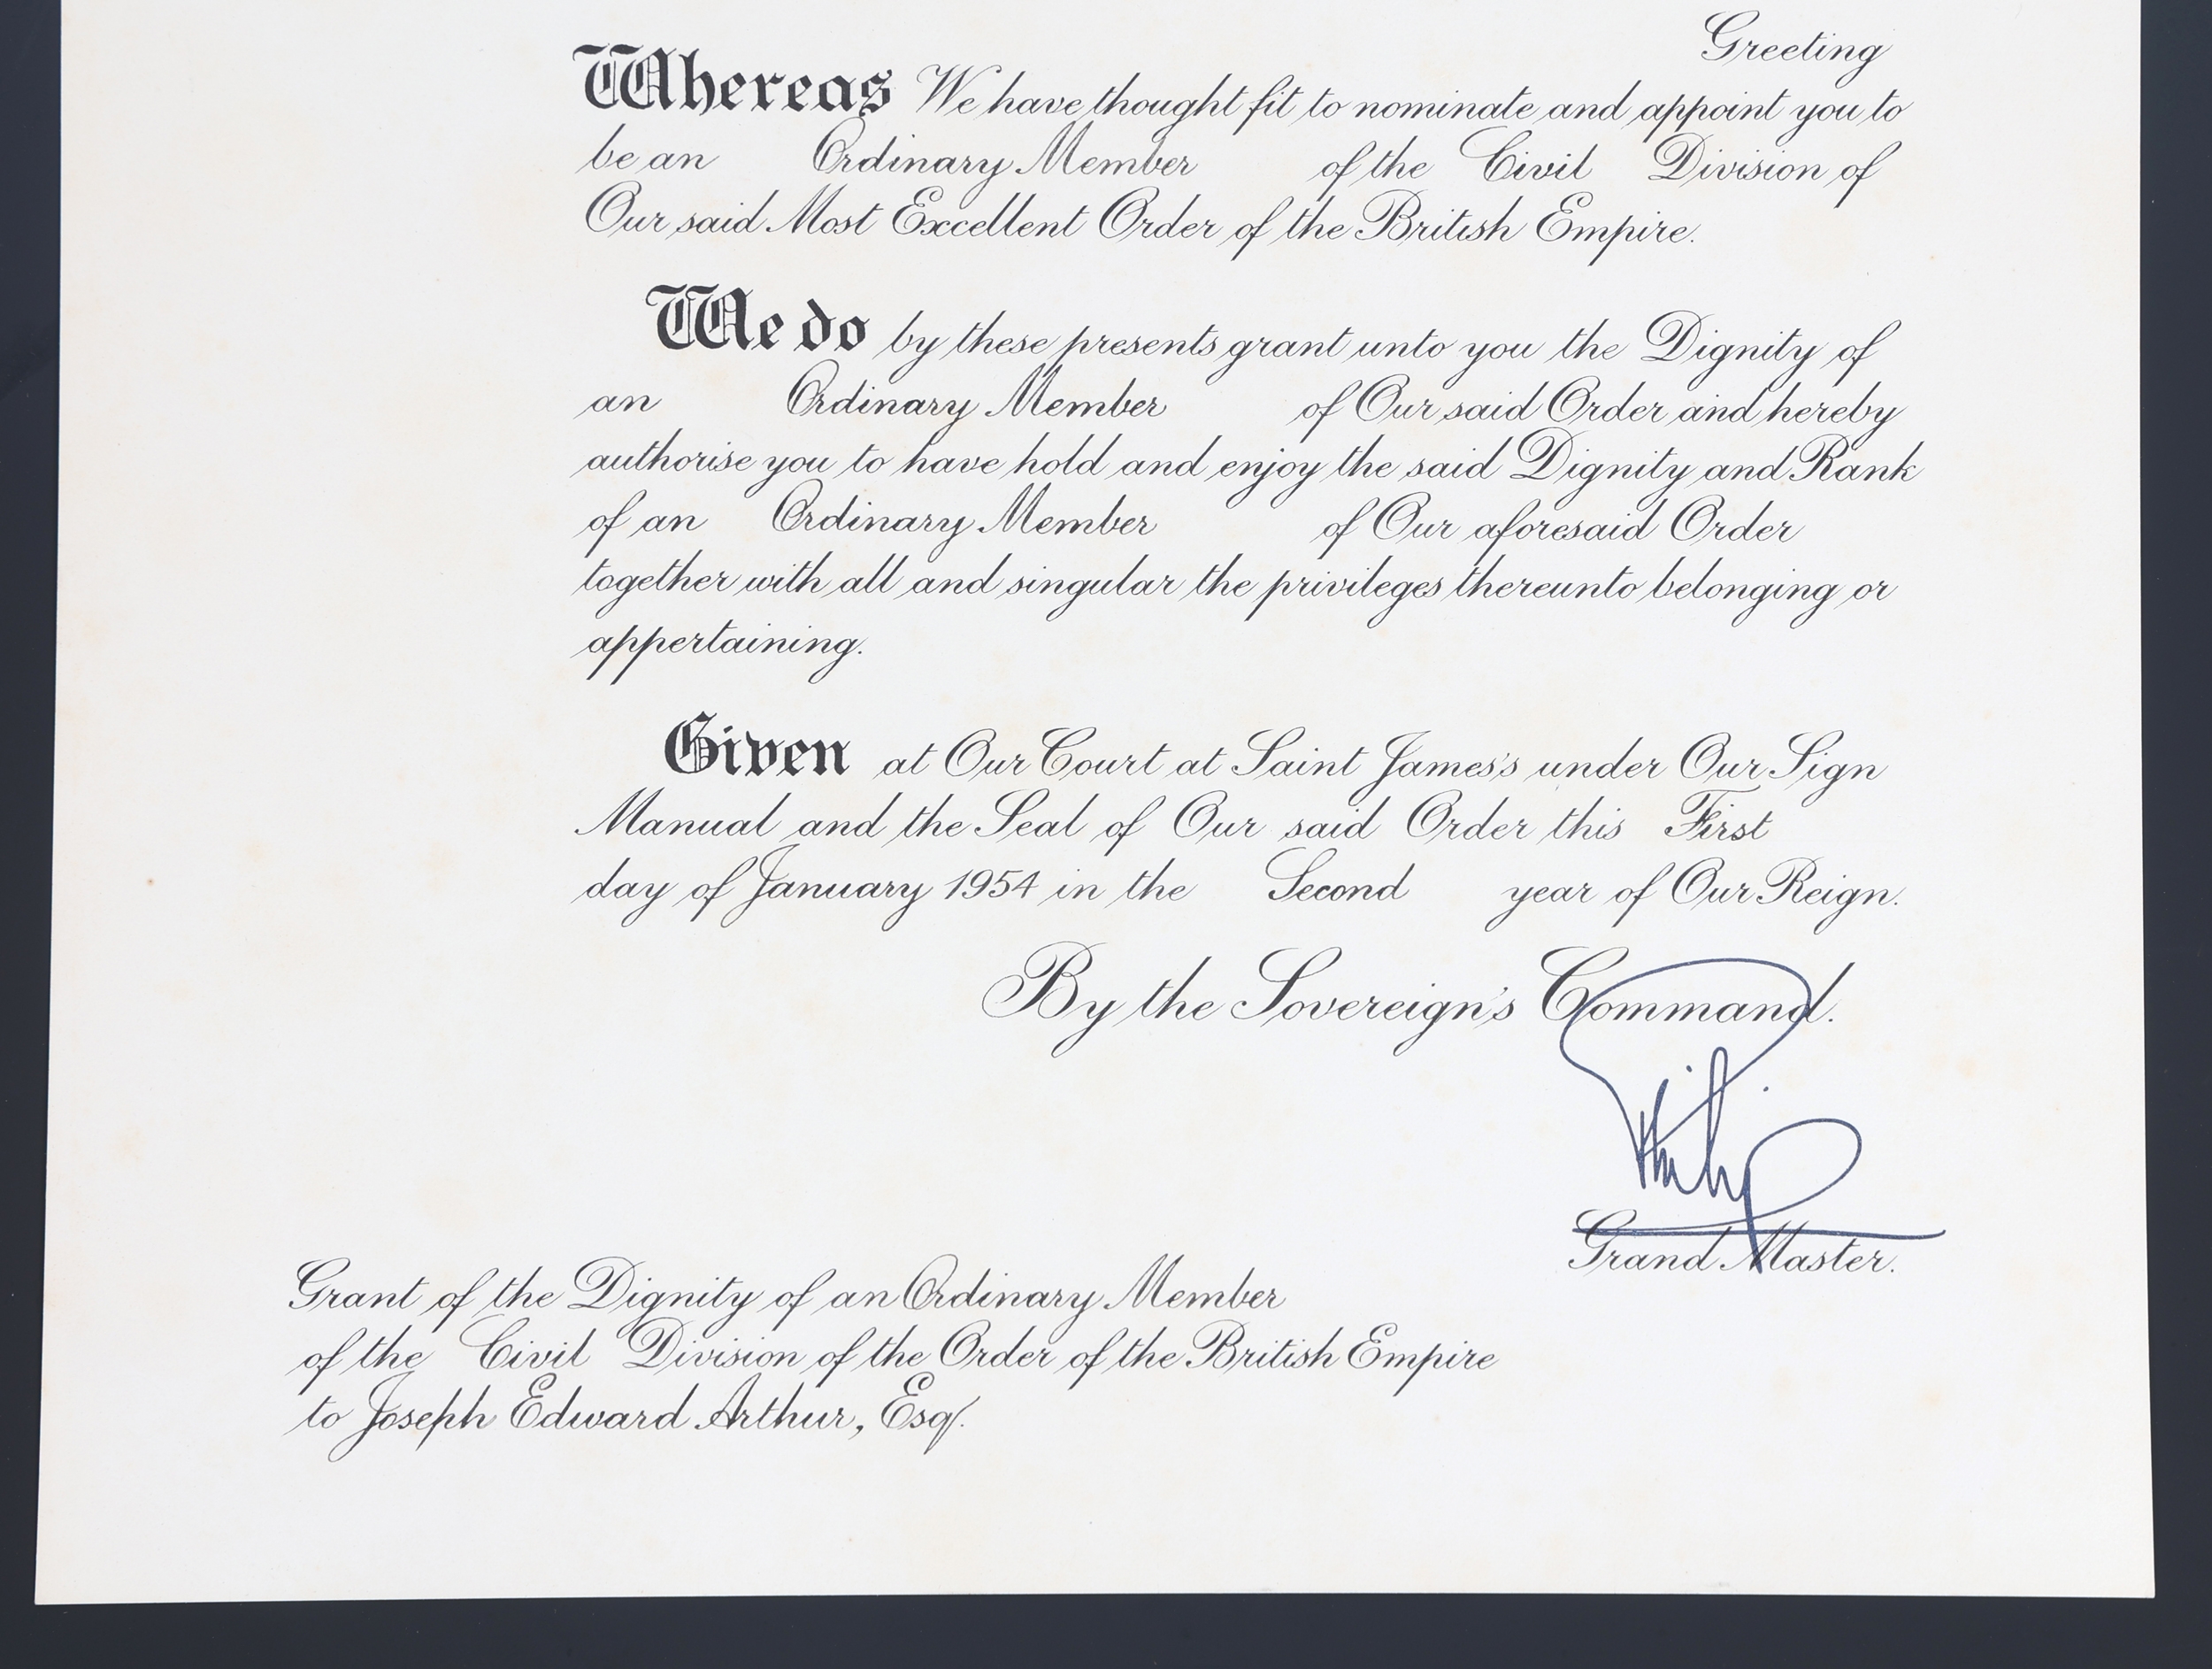 Greeting
Whereas We have thought fit to nominate and appoint you to
be an Ordinary Member of the Civil Division of
Our said Most Excellent Order of the British Empire.
We do by these presents grant unto you the Dignity of
an Ordinary Member of Our said Order and hereby
authorise you to have hold and enjoy the said Dignity and Rank
of an Ordinary Member of Our aforesaid Order
together with all and singular the privileges thereunto belonging or
appertaining.
Given at Our Court at Saint James's under Our Sign
Manual and the Seal of Our said Order this First
day of January 1954 in the Second year of Our Reign.
By the Sovereign's Command.
Philip
Grand Master.
Grant of the Dignity of an Ordinary Member
of the Civil Division of the Order of the British Empire
to Joseph Edward Arthur, Esq.